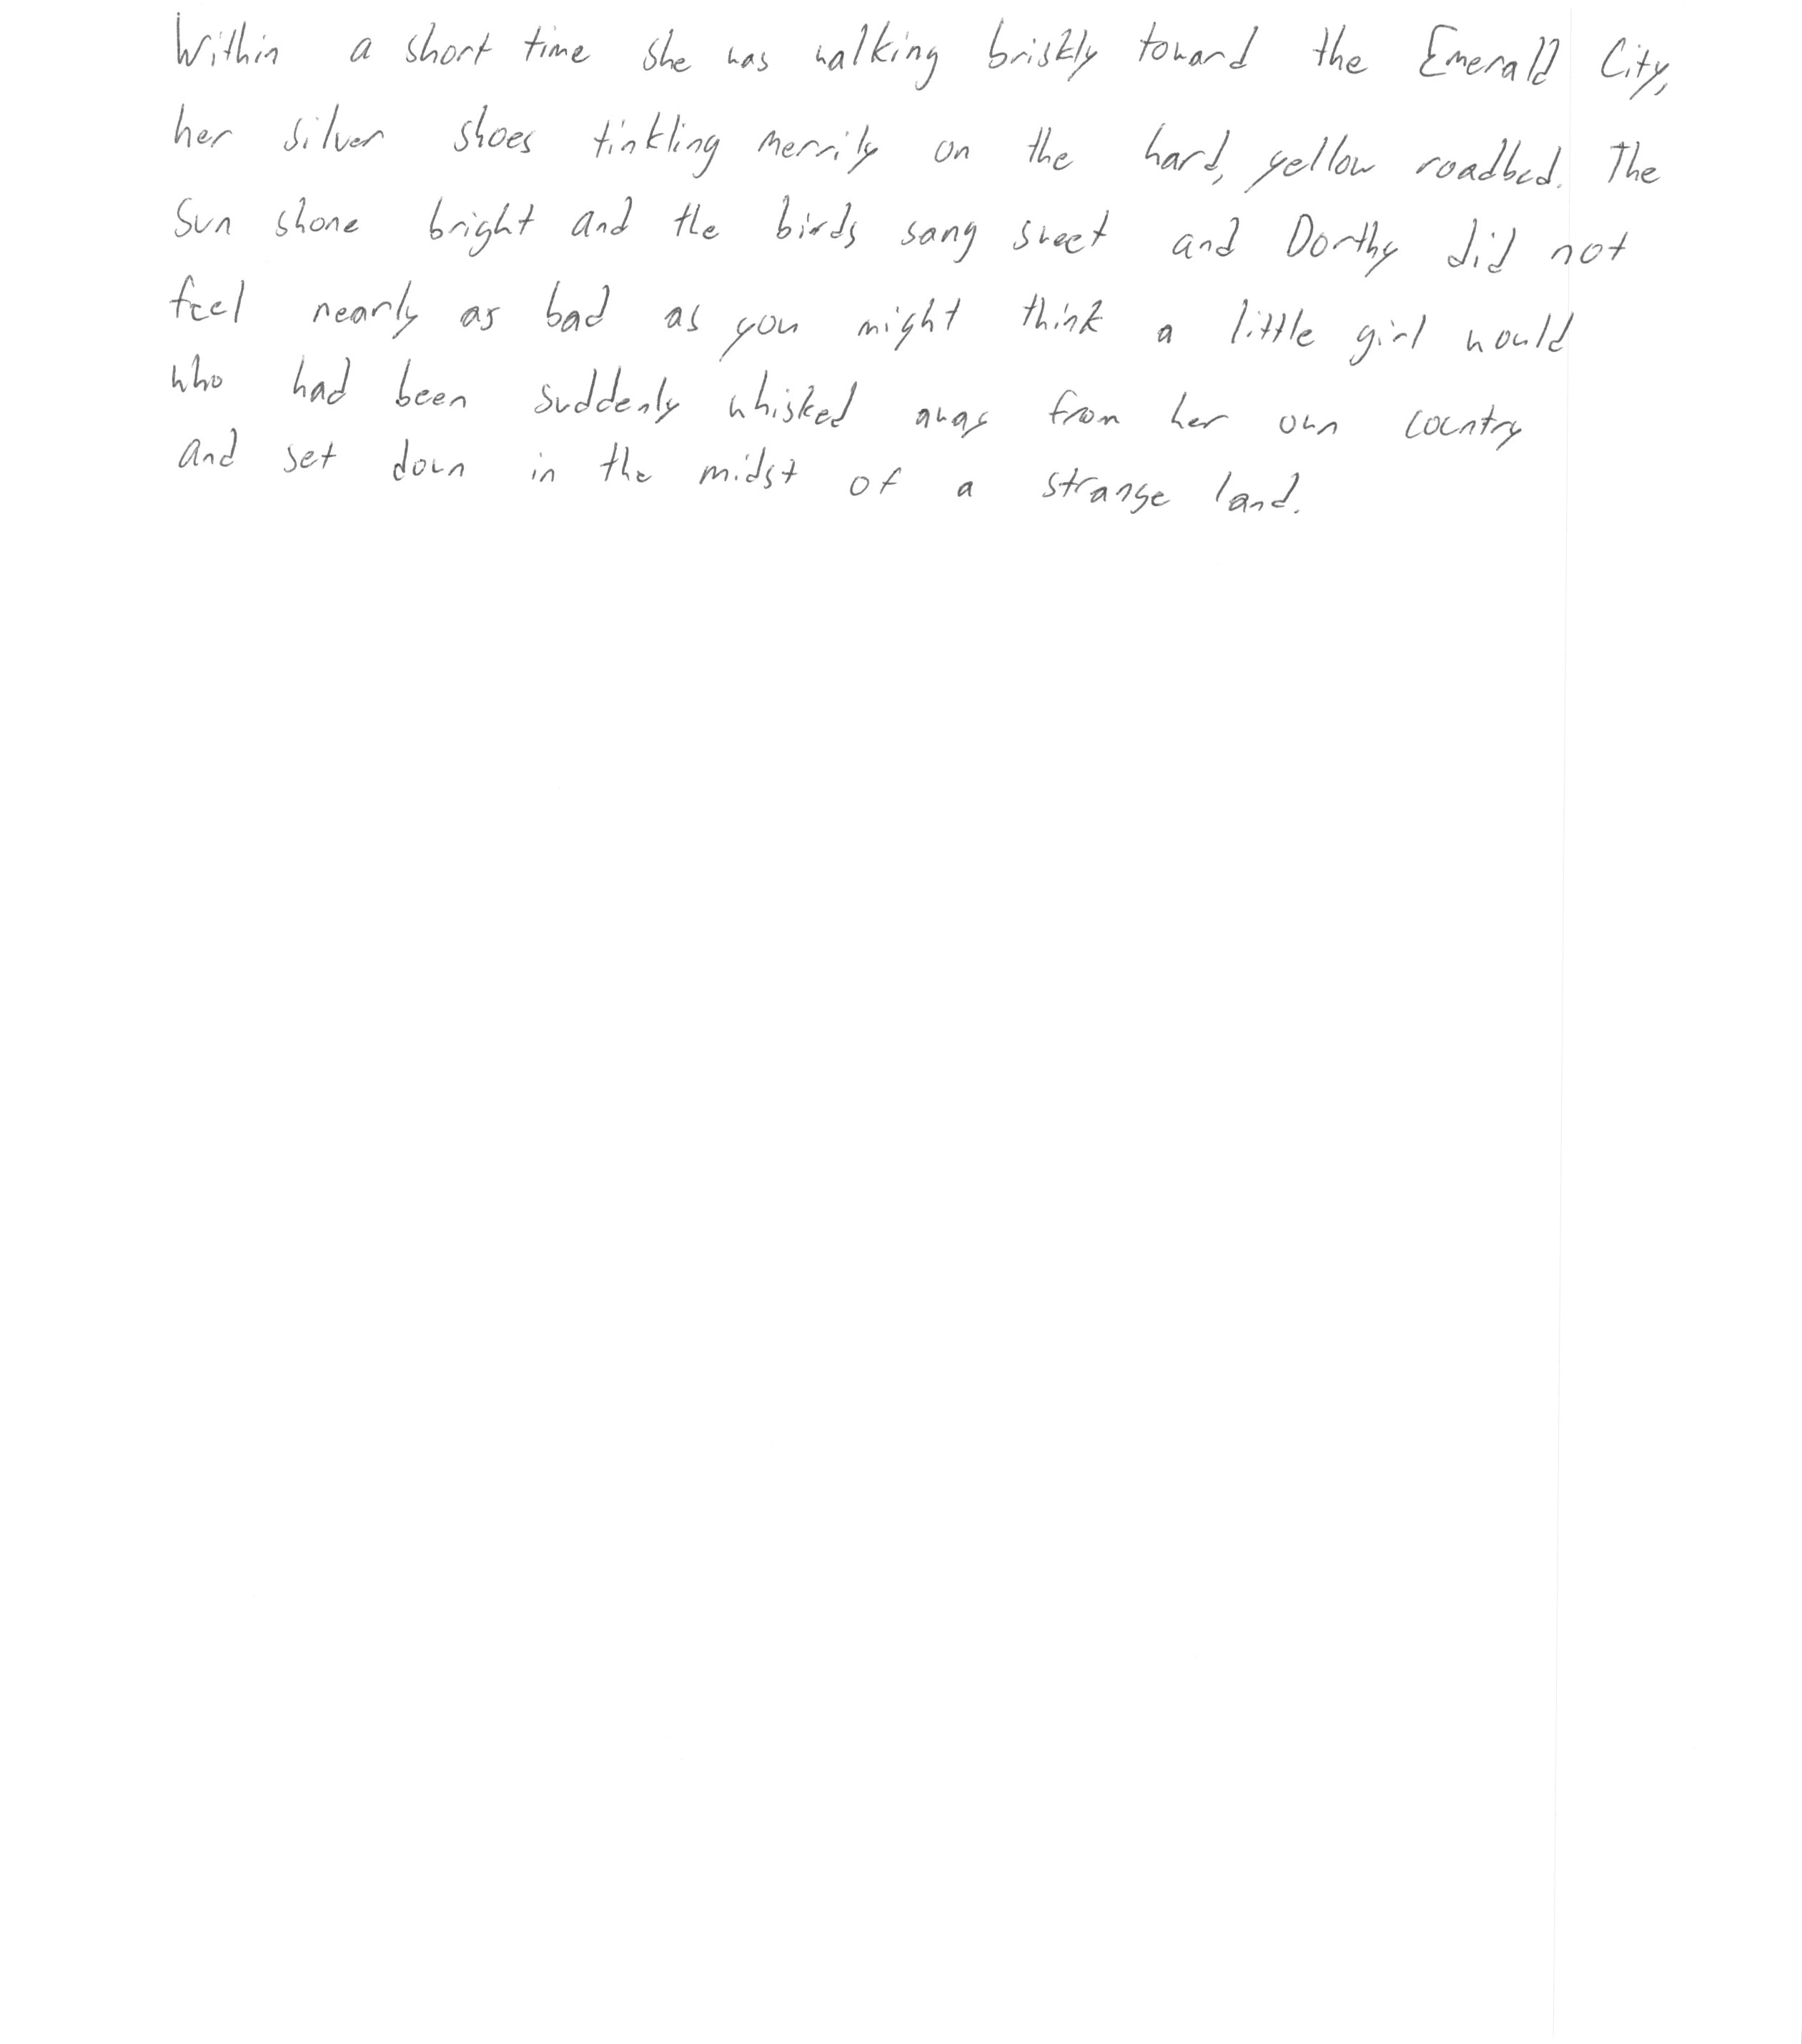 Within a short time she was walking briskly toward the Emerald City,
her silver shoes tinkling merrily on the hard, yellow roadbed. The
sun shone bright and the birds sang sweet and Dorthy did not
feel nearly as bad as you might think a little girl would
who had been suddenly whisked away from her own country
and set down in the midst of a strange land.